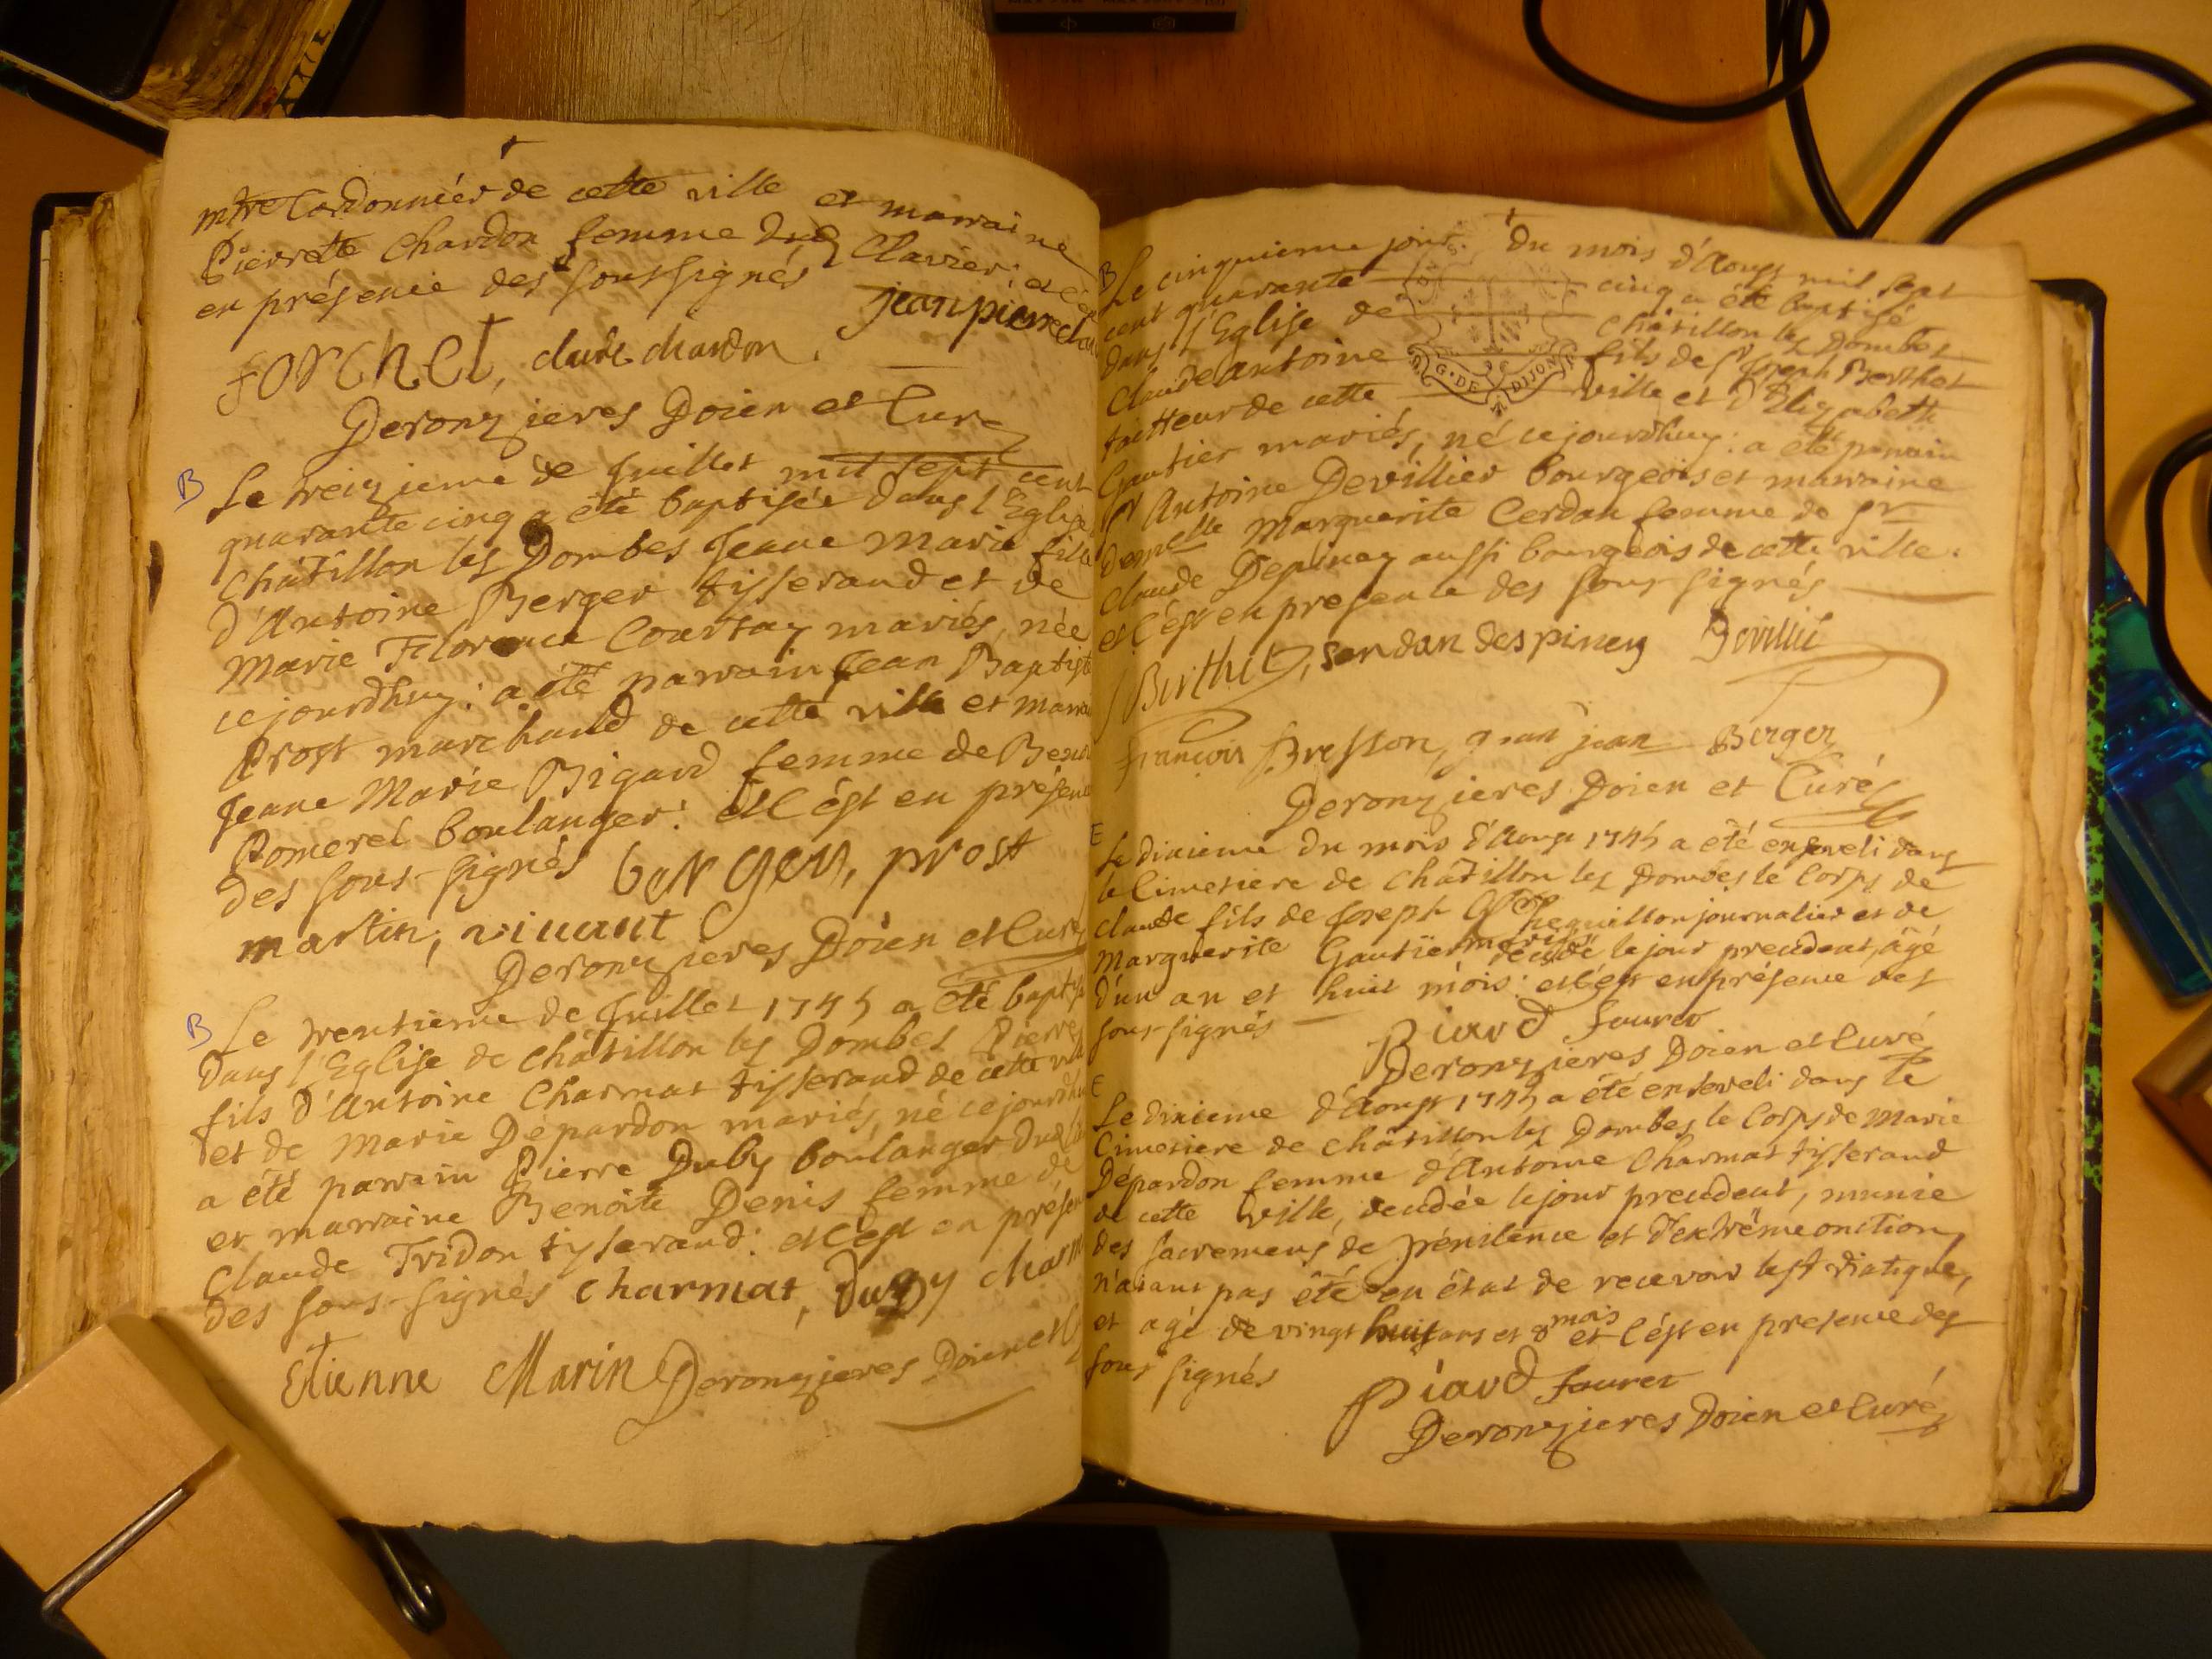 mtre Cordonnier de cette ville et marraine
Pierrette Chardon femme dud Clavier: et c'est
en présence des soussignés jean pierre
forchet, claude chardon.
Deronzieres Doien et Curé
B Le treizieme de Juillet mil sept cent
quarante cinq a été baptisée dans l'Eglise
Châtillon les Dombes Jeane Marie fille
d'Antoine Berger tisserand et de
Marie Florence Courtay mariés, née
cejourdhuy: a été parrain Jean Baptiste
Prost marchand de cette ville et marra
Jeane Marie Bigard femme de Beno
Pomerel boulanger: et c'ést en présence
des sous-signés berger, prost
martin, vivant
Deronzieres Doien et Curé
B Le trentieme de Juillet 1745 a été baptisé
dans l'Eglise de Châtillon les Dombes Pierre
fils d'Antoine Charmat tisserand de cette ville
et de Marie Depardon mariés, né cejourdhuy
a été parrain Pierre Duby boulanger dud
et marraine Benoite Denis femme de
Claude Tridon tisserand: et c'est en présen
des sous-signés charmat, duby charm
Etienne Marin Deronzieres Doien et C
B Le cinquieme jour du mois d'Aoust mil sept
cent quarante cinq a été baptisé
dans l'Eglise de Châtillon les Dombes
Claude Antoine fils de Sr Joseph Berthet
traitteur de cette ville et d'Elizabeth
G·DE DIJON
Gautier mariés, né cejourdhuy: a été parrain
Sr Antoine Devillier bourgeois et marraine
demoiselle Marguerite Cerdan femme de Sr
Claude Depiney aussi bourgeois de cette ville.
et c'ést en presence des sous-signés
Berthet, serdan despiney Devillié
françois Bresson, jean Berger
Deronzieres Doien et Curé
E Le dixieme du mois d'Aoust 1745 a été enseveli dans
le Cimetiere de Châtillon les Dombes le Corps de
Claude fils de Joseph journalier et de
Marguerite Gautier mariés decedé le jour precedent, âgé
d'un an et huit mois: et c'ést en présence des
sous-signés Piard fauret
Deronzieres Doien et Curé
E Le dixieme d'Aoust 1745 a été enseveli dans le
Cimetiere de Châtillon les Dombes le Corps de Marie
Dépardon femme d'Antoine Charmat tisserand
de cette ville, decedée le jour precedent, munie
des sacremens de pénitence et d'extrême onction,
n'aiant pas été en état de recevoir le st viatique,
et agé de vingt huit ans et 8 mois et c'ést en presence des
sous signés Piard fauret
Deronzieres Doien et Curé